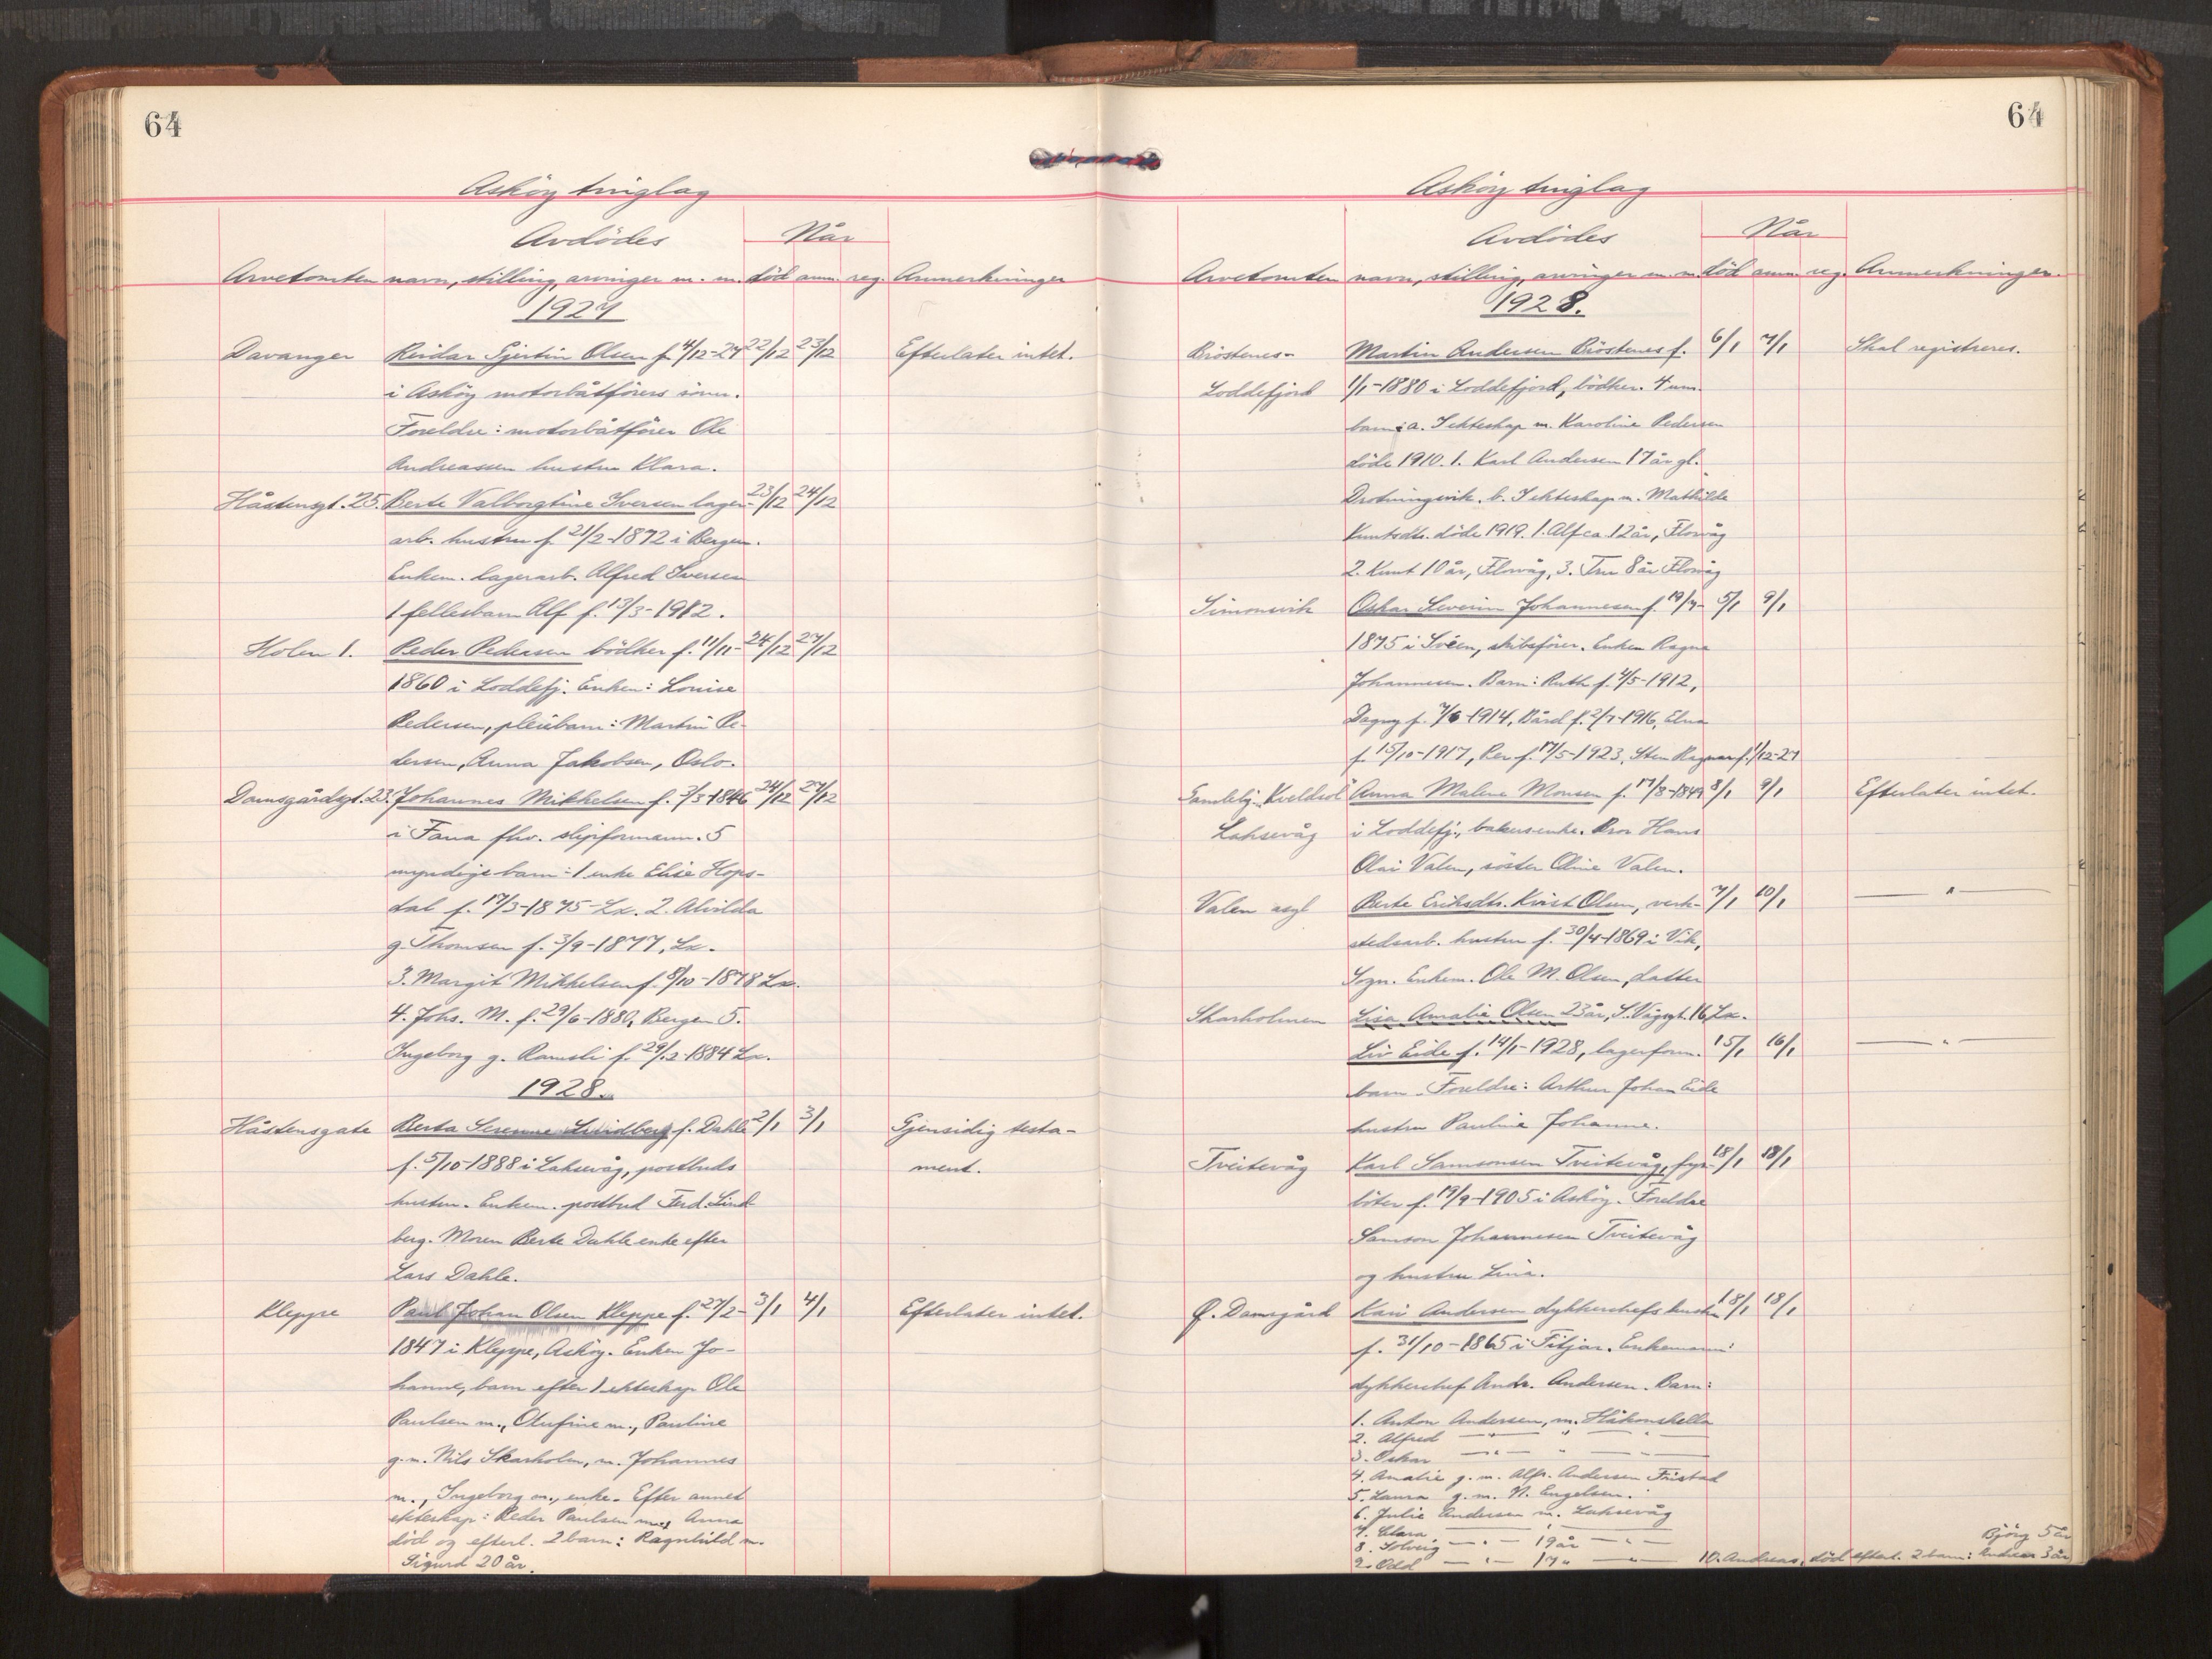 64
Asköy tinglag
Avdödes
Når
Arvetomten navn, stilling, arvinger m. m. död anm. reg. Anmerkninger
1927
Davanger Reidar Gjertin Olsen f. 4/12-27 22/12 23/12 Efterlater intet.
i Asköy motorbåtförers sönn.
Foreldre: motorbåtförer Ole
Andreassen hustru Klara.
Håstensgt. 25. Berte Valborgtine Iversen lager- 23/12 24/12
arb. hustru f. 21/2-1872 i Bergen.
Enkem. lagerarb. Alfred Iversen
1 fellesbarn Alf f. 13/3-1912.
Holen 1. Peder Pedersen bödker f. 11/11- 24/12 27/12
1860 i Loddefj. Enken: Louise
Pedersen, pleiebarn: Martin Pe-
dersen, Anna Jakobsen, Oslo.
Damsgårdsgt. 23. Johannes Mikkelsen f. 3/3-1846 24/12 27/12
i Fana fhv. slipformann. 5
myndige barn: 1 enke Elise Hops-
dal f. 17/3-1875 Lx. 2. Alvilda
g. Thomsen f. 3/9-1877, Lx.
3. Margit Mikkelsen f. 8/10-1878 Lx.
4. Johs. M. f. 29/6-1880, Bergen 5.
Ingeborg g. Ramsli f. 29/12-1884 Lx.
1928.
Håstensgate Berta Serenne Lindberg f. Dahle 2/1 3/1 Gjensidig testa-
f. 5/10-1888 i Laksevåg, postbuds ment.
hustru. Enkem. postbud Ferd. Lind
berg. Moren Berte Dahle enke efter
Lars Dahle.
Kleppe Paul Johan Olsen Kleppe f. 27/2- 3/1 4/1 Efterlater intet.
1847 i Kleppe, Asköy. Enken Jo-
hanne, barn efter 1 ekteskap Ole
Paulsen m., Olufine m., Pauline
g. m. Nils Skarholm, m. Johannes
m., Ingeborg m., enke. Efter annet
ekteskap: Peder Paulsen Anna
död og efterl. 2 barn: Ragnhild m.
Sigurd 20 år.
64
Asköy tinglag
Avdödes
Når
Arvetomten navn, stilling, arvinger m. m. död anm. reg. Anmerkninger.
1928.
Bröstenes- Martin Andersen Bröstenes f. 6/1 7/1 Skal registreres.
Loddefjord 1/1-1880 i Loddefjord, bödker. 4 um.
barn: a. I ekteskap m. Karoline Pedersen
döde 1910. 1. Karl Andersen 17 år gl.
Drotningsvik. b. I ekteskap m. Mathilde
Knutsdtr. döde 1919. 1. Alf ca. 12 år, Florvåg
2. Knut 10 år, Florvåg, 3. 8 år Florvåg
Simonsvik Oskar Severin Johannesen f. 19/7- 5/1 9/1
1875 i Sveen, skibsförer. Enken Ragna
Johannesen. Barn: Ruth f. 4/5-1912,
Dagny f. 7/6-1914, Bård f. 2/7-1916, Elna
f. 15/10-1917, Per f. 17/5-1923, Sten Ragnar f. 1/12-27
Gamlehj. Kveldsol Anna Malene Monsen f. 17/8-1849 8/1 9/1 Efterlater intet.
Laksevåg i Loddefj., bakers enke. Bror Hans
Olai Valen, söster Oline Valen.
Valen asyl Berte Eriksdtr. Kvist Olsen, verk- 7/1 10/1 — " —
stedsarb. hustru f. 30/4-1869 i Vik,
Sogn. Enkem. Ole M. Olsen, datter
Skarholmen Lisa Amalie Olsen 23 år, S. Vågsgt. 16, Lx.
Liv Eide f. 14/1-1928, lagerform. 15/1 16/1 — " —
barn. Foreldre: Arthur Johan Eide
hustru Pauline Johanne.
Tveitevåg Karl Samsonsen Tveitevåg, fyr- 18/1 18/1
böter f. 19/9-1905 i Asköy. Foreldre
Samson Johannesen Tveitevåg
og hustru Lina.
Ö. Damsgård Kari Andersen dykkerchefs hustru 18/1 18/1
f. 31/10-1865 i Fitjar. Enkemann:
dykkerchef Andr. Andersen. Barn:
1. Anton Andersen, m. Håkonshella
2. Alfred — " — " — " —
3. Oskar — " — " — " —
4. Amalie g. m. Alfr. Andersen
5. Laura g. m. N. Engelsen.
6. Julie Andersen m. Laksevåg
7. Clara — " —
8. Solveig — " — 19 år — " —
9. Odd — " — 17 " — " — 10. Andreas, död efterl. 2 barn: Björg 5 år
Andreas 3 år